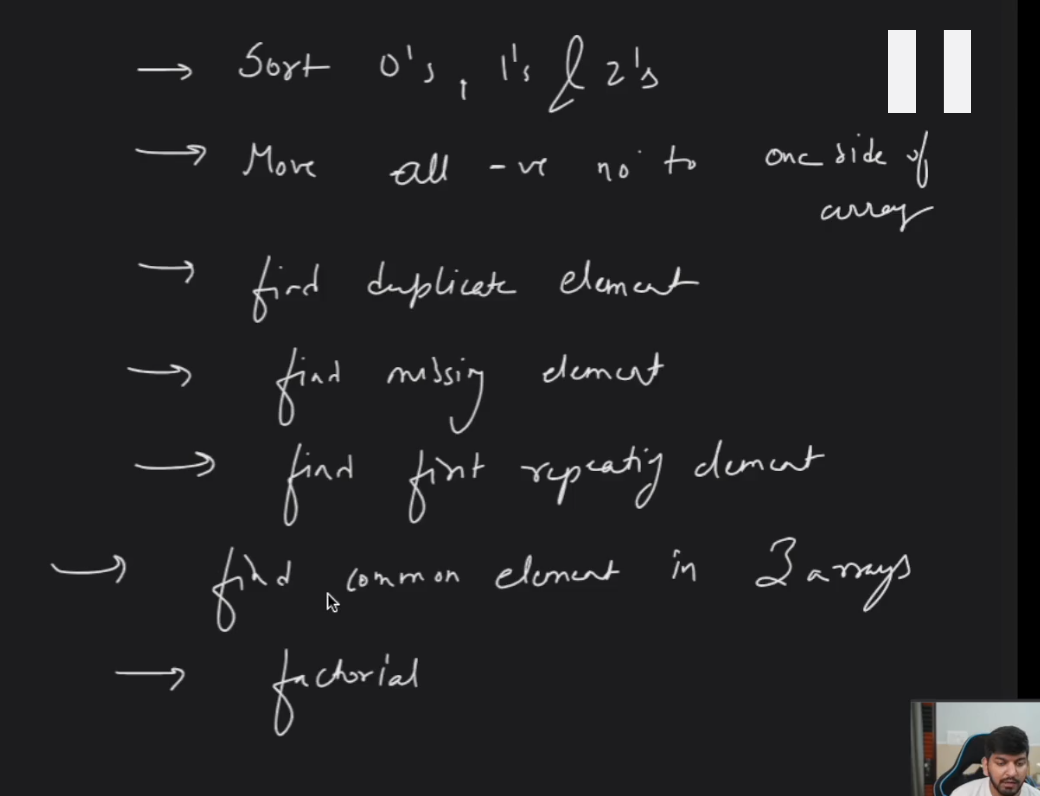 → Sort 0's, 1's & 2's
→ Move all -ve no to one side of
array
→ find duplicate element
→ find missing element
→ find first repeating element
→ find common element in 3 arrays
→ factorial